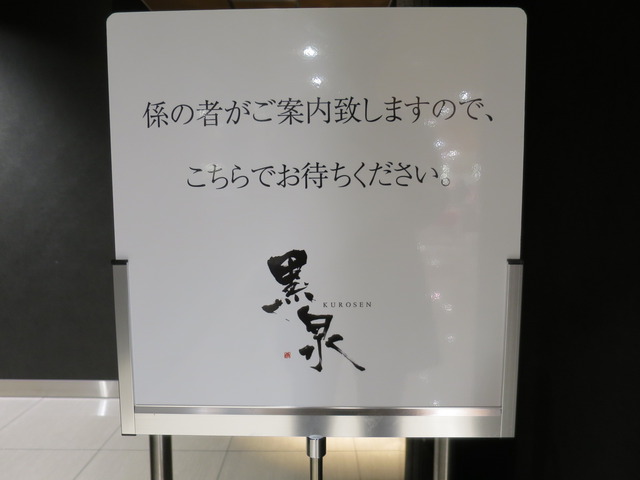 係の者がご案内致しますので、
こちらでお待ちください。
黒泉
KUROSEN